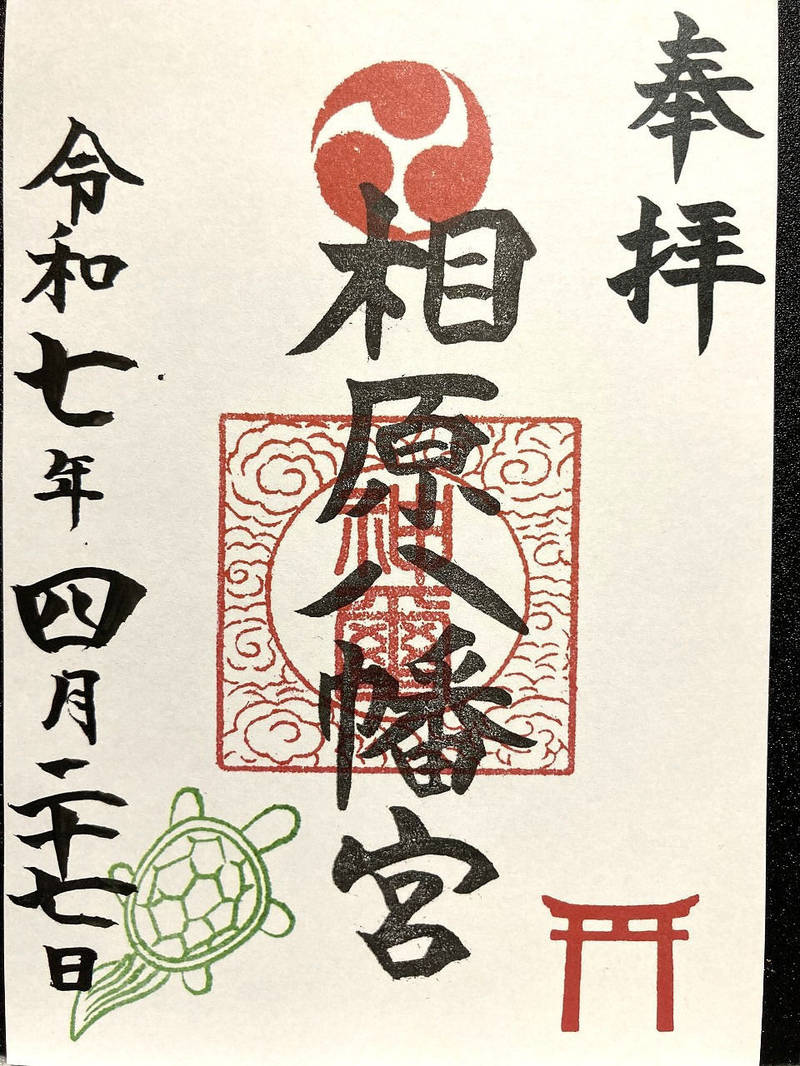 奉拝
相原八幡宮
神璽
令和七年四月二十七日